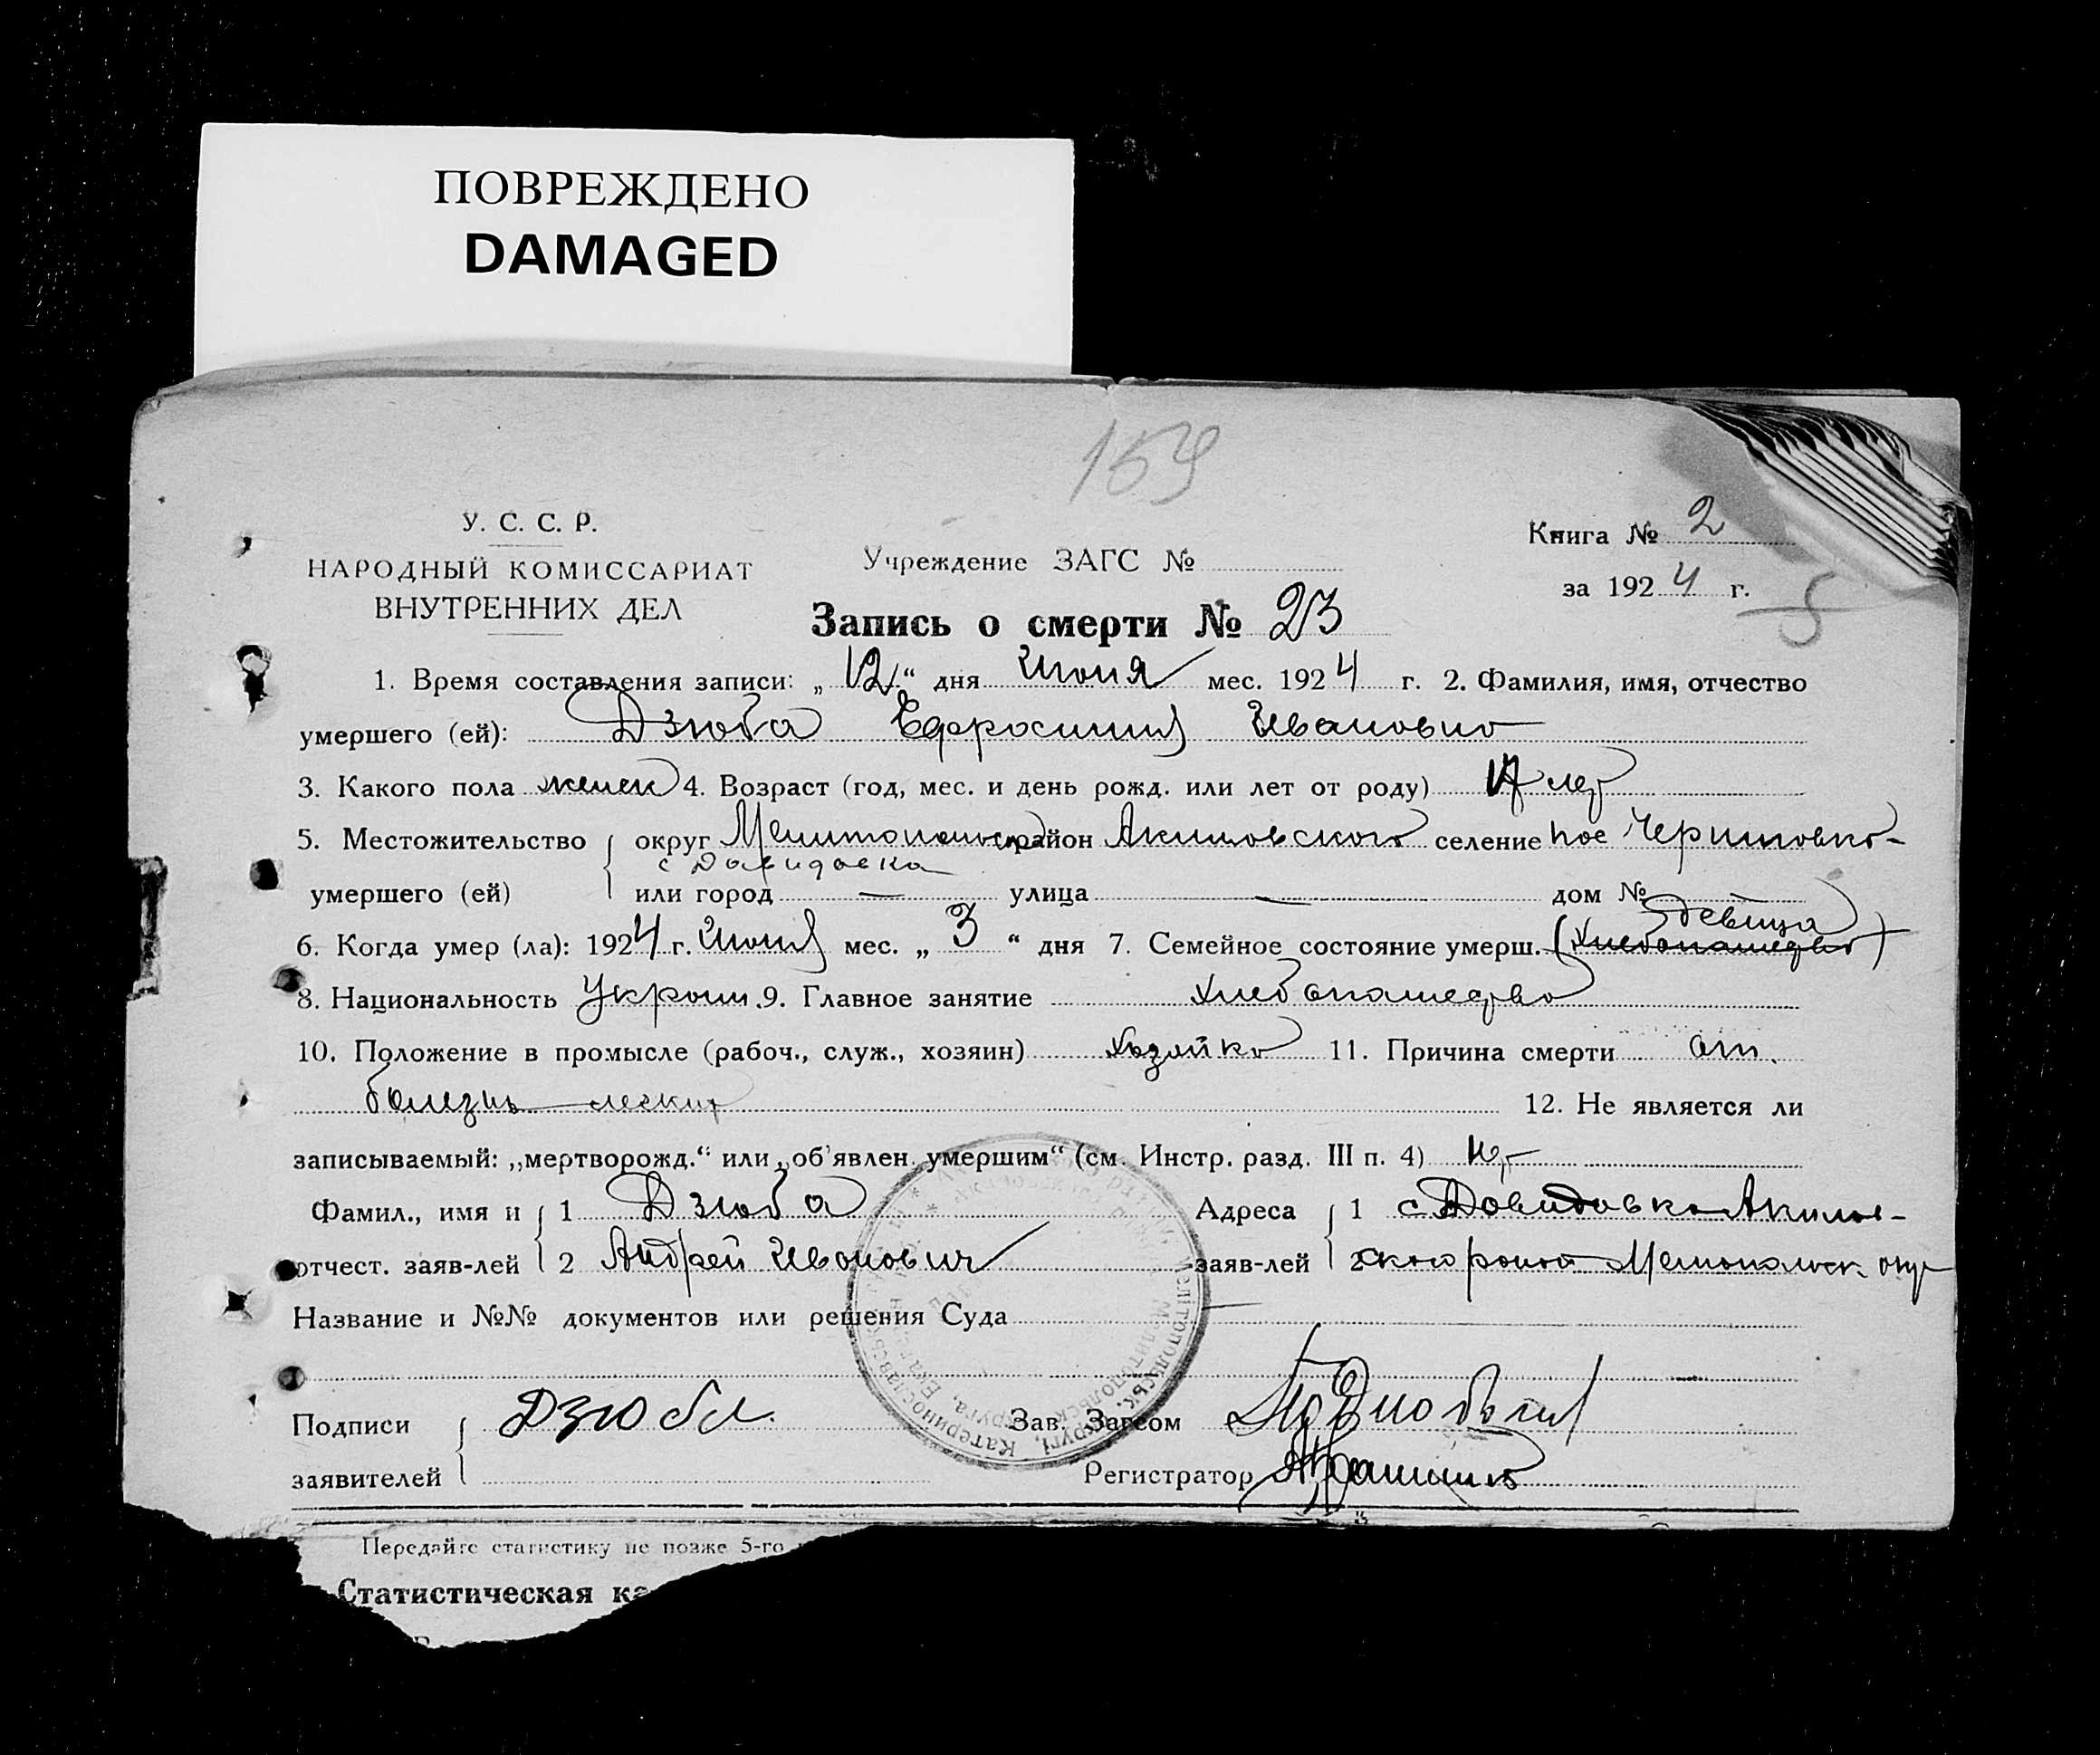 ПОВРЕЖДЕНО
DAMAGED
159
У. С. С. Р.
НАРОДНЫЙ КОМИССАРИАТ
ВНУТРЕННИХ ДЕЛ
Учреждение ЗАГС №
Книга № 2
за 1924 г.
5
Запись о смерти № 23
1. Время составления записи: „12“ дня Июня мес. 1924 г. 2. Фамилия, имя, отчество
умершего (ей): Дзюба Ефросиния Ивановна
3. Какого пола женск 4. Возраст (год, мес. и день рожд. или лет от роду) 17 лет
5. Местожительство округ Мелитопольск район Акимовского селение
с Давидовка
умершего (ей) или город — улица — дом №
девица
6. Когда умер (ла): 1924 г. Июня мес. „ 3 “ дня 7. Семейное состояние умерш. (хлебопашество)
8. Национальность Украин. 9. Главное занятие хлебопашество
10. Положение в промысле (рабоч., служ., хозяин) хозяйка 11. Причина смерти от.
болезнь легких 12. Не является ли
записываемый: „мертворожд.“ или „об'явлен умершим“ (см. Инстр. разд. III п. 4) нет
Фамил., имя и 1 Дзюба Адреса 1 с Давидовка Акимов-
отчест. заяв-лей 2 Андрей Иванович заяв-лей 2 ского район Мелитопольск. окр
Название и №№ документов или решения Суда —
Подписи Дзюба. Зав. Загсом
заявителей Регистратор
Передайте статистику не позже 5-го
Статистическая ка